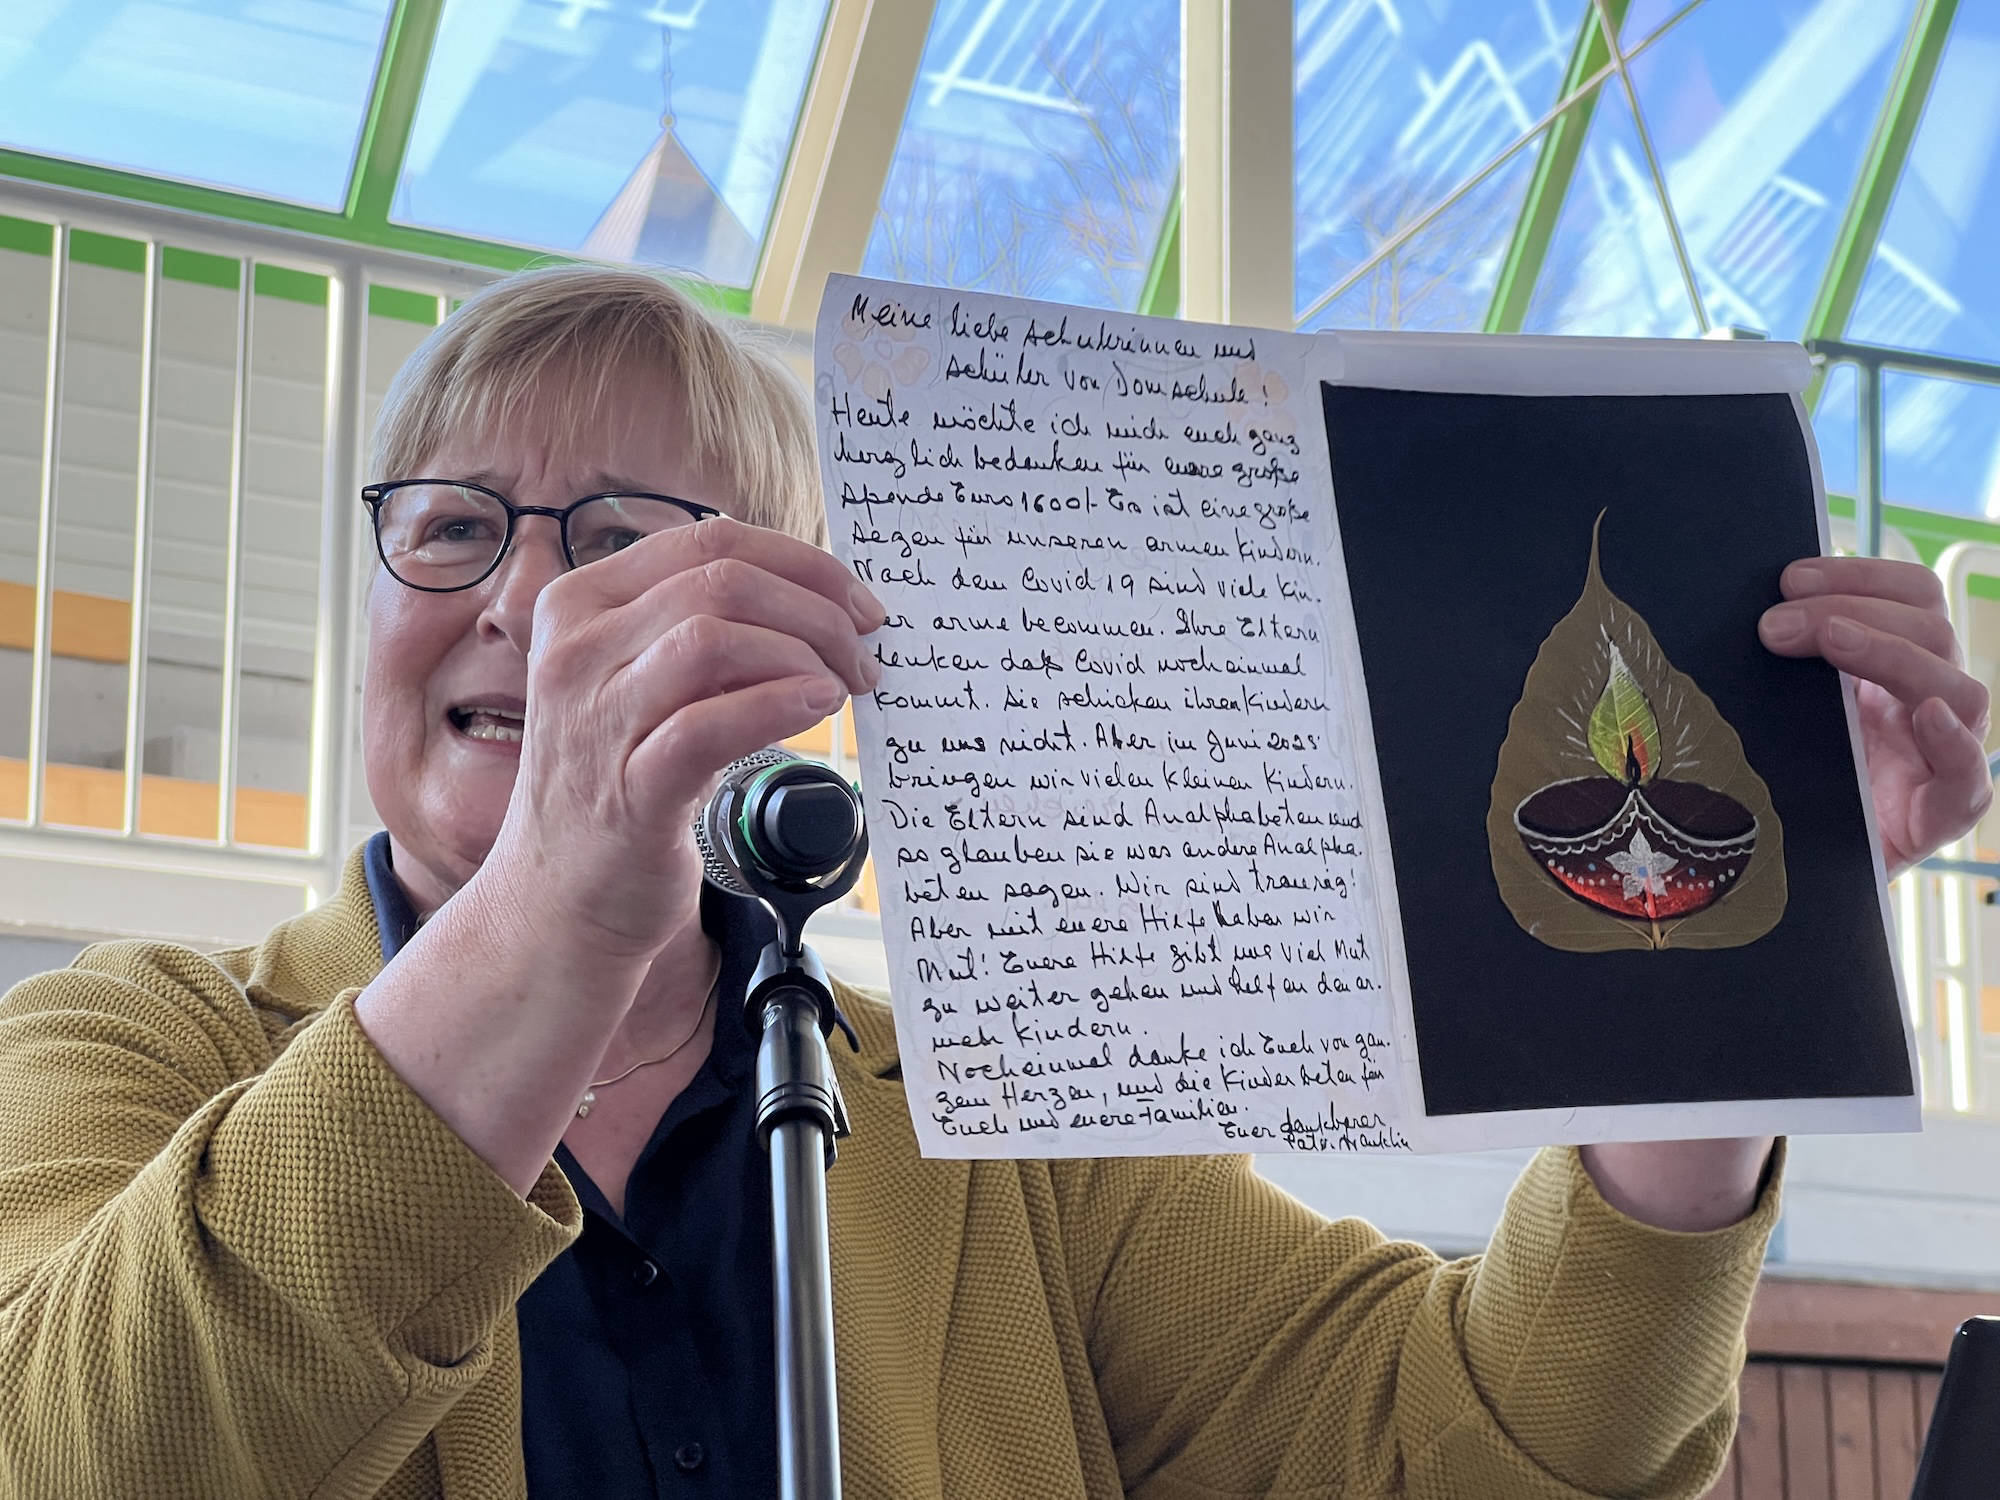 Meine liebe Schülerinnen und
Schüler von Domschule!
Heute möchte ich mich euch ganz
herzlich bedanken für euere große
Spende Euro 1600/- Es ist eine große
Segen für unseren armen Kindern.
Nach dem Covid 19 sind viele Kin-
er arme becommen. Ihre Eltern
denken daß Covid noch einmal
kommt. Sie schicken ihren Kindern
zu uns nicht. Aber im Juni 2025
bringen wir vielen kleinen Kindern.
Die Eltern sind Analphabeten und
so glauben sie was andere Analpha-
beten sagen. Wir sind traurig!
Aber mit euere Hilfe haben wir
Mut! Euere Hilfe gibt uns viel Mut
zu weiter gehen und helfen den ar-
meh Kindern.
Noch einmal danke ich Euch von gan-
zem Herzen, und die Kinder beten für
Euch und euere Familien.
Euer dankbarer
Franklin